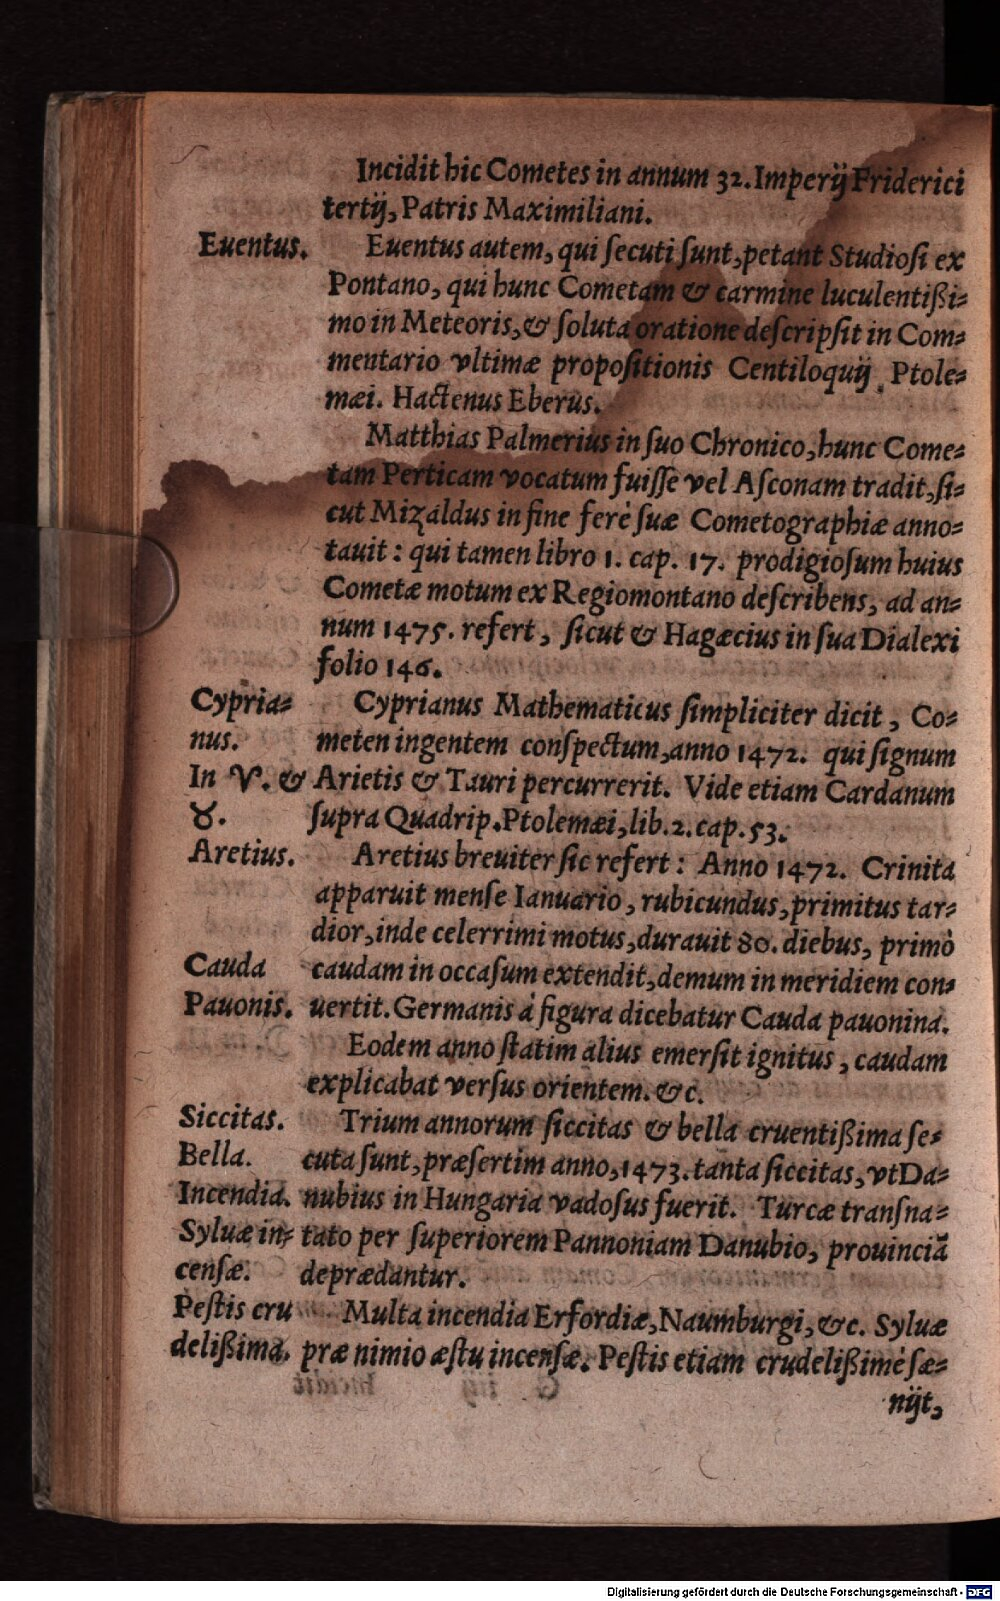 Incidit hic Cometes in annum 32. Imperij Friderici
tertij, Patris Maximiliani.
Euentus. Euentus autem, qui secuti sunt, petant Studiosi ex
Pontano, qui hunc Cometam & carmine luculentißi-
mo in Meteoris, & soluta oratione descripsit in Com-
mentario vltimæ propositionis Centiloquij Ptole-
mæi. Hactenus Eberus.
Matthias Palmerius in suo Chronico, hunc Come-
tam Perticam vocatum fuisse vel Asconam tradit, si-
cut Mizaldus in fine ferè suæ Cometographiæ anno-
tauit: qui tamen libro 1. cap. 17. prodigiosum huius
Cometæ motum ex Regiomontano describens, ad an-
num 1475. refert, sicut & Hagæcius in sua Dialexi
folio 146.
Cypria- Cyprianus Mathematicus simpliciter dicit, Co-
nus. meten ingentem conspectum, anno 1472. qui signum
In ♈. & Arietis & Tauri percurrerit. Vide etiam Cardanum
♉. supra Quadrip. Ptolemæi, lib. 2. cap. 53.
Aretius. Aretius breuiter sic refert: Anno 1472. Crinita
apparuit mense Ianuario, rubicundus, primitus tar-
dior, inde celerrimi motus, durauit 80. diebus, primò
Cauda caudam in occasum extendit, demum in meridiem con-
Pauonis. uertit. Germanis à figura dicebatur Cauda pauonina.
Eodem anno statim alius emersit ignitus, caudam
explicabat versus orientem. &c.
Siccitas. Trium annorum siccitas & bella cruentißima se-
Bella. cuta sunt, præsertim anno, 1473. tanta siccitas, vt Da-
Incendia. nubius in Hungaria vadosus fuerit. Turcæ transna-
Syluæ in- tato per superiorem Pannoniam Danubio, prouinciã
censæ. deprædantur.
Pestis cru Multa incendia Erfordiæ, Naumburgi, &c. Syluæ
delißima. præ nimio æstu incensæ. Pestis etiam crudelißimè sæ-
nijt,
Digitalisierung gefördert durch die Deutsche Forschungsgemeinschaft - DFG